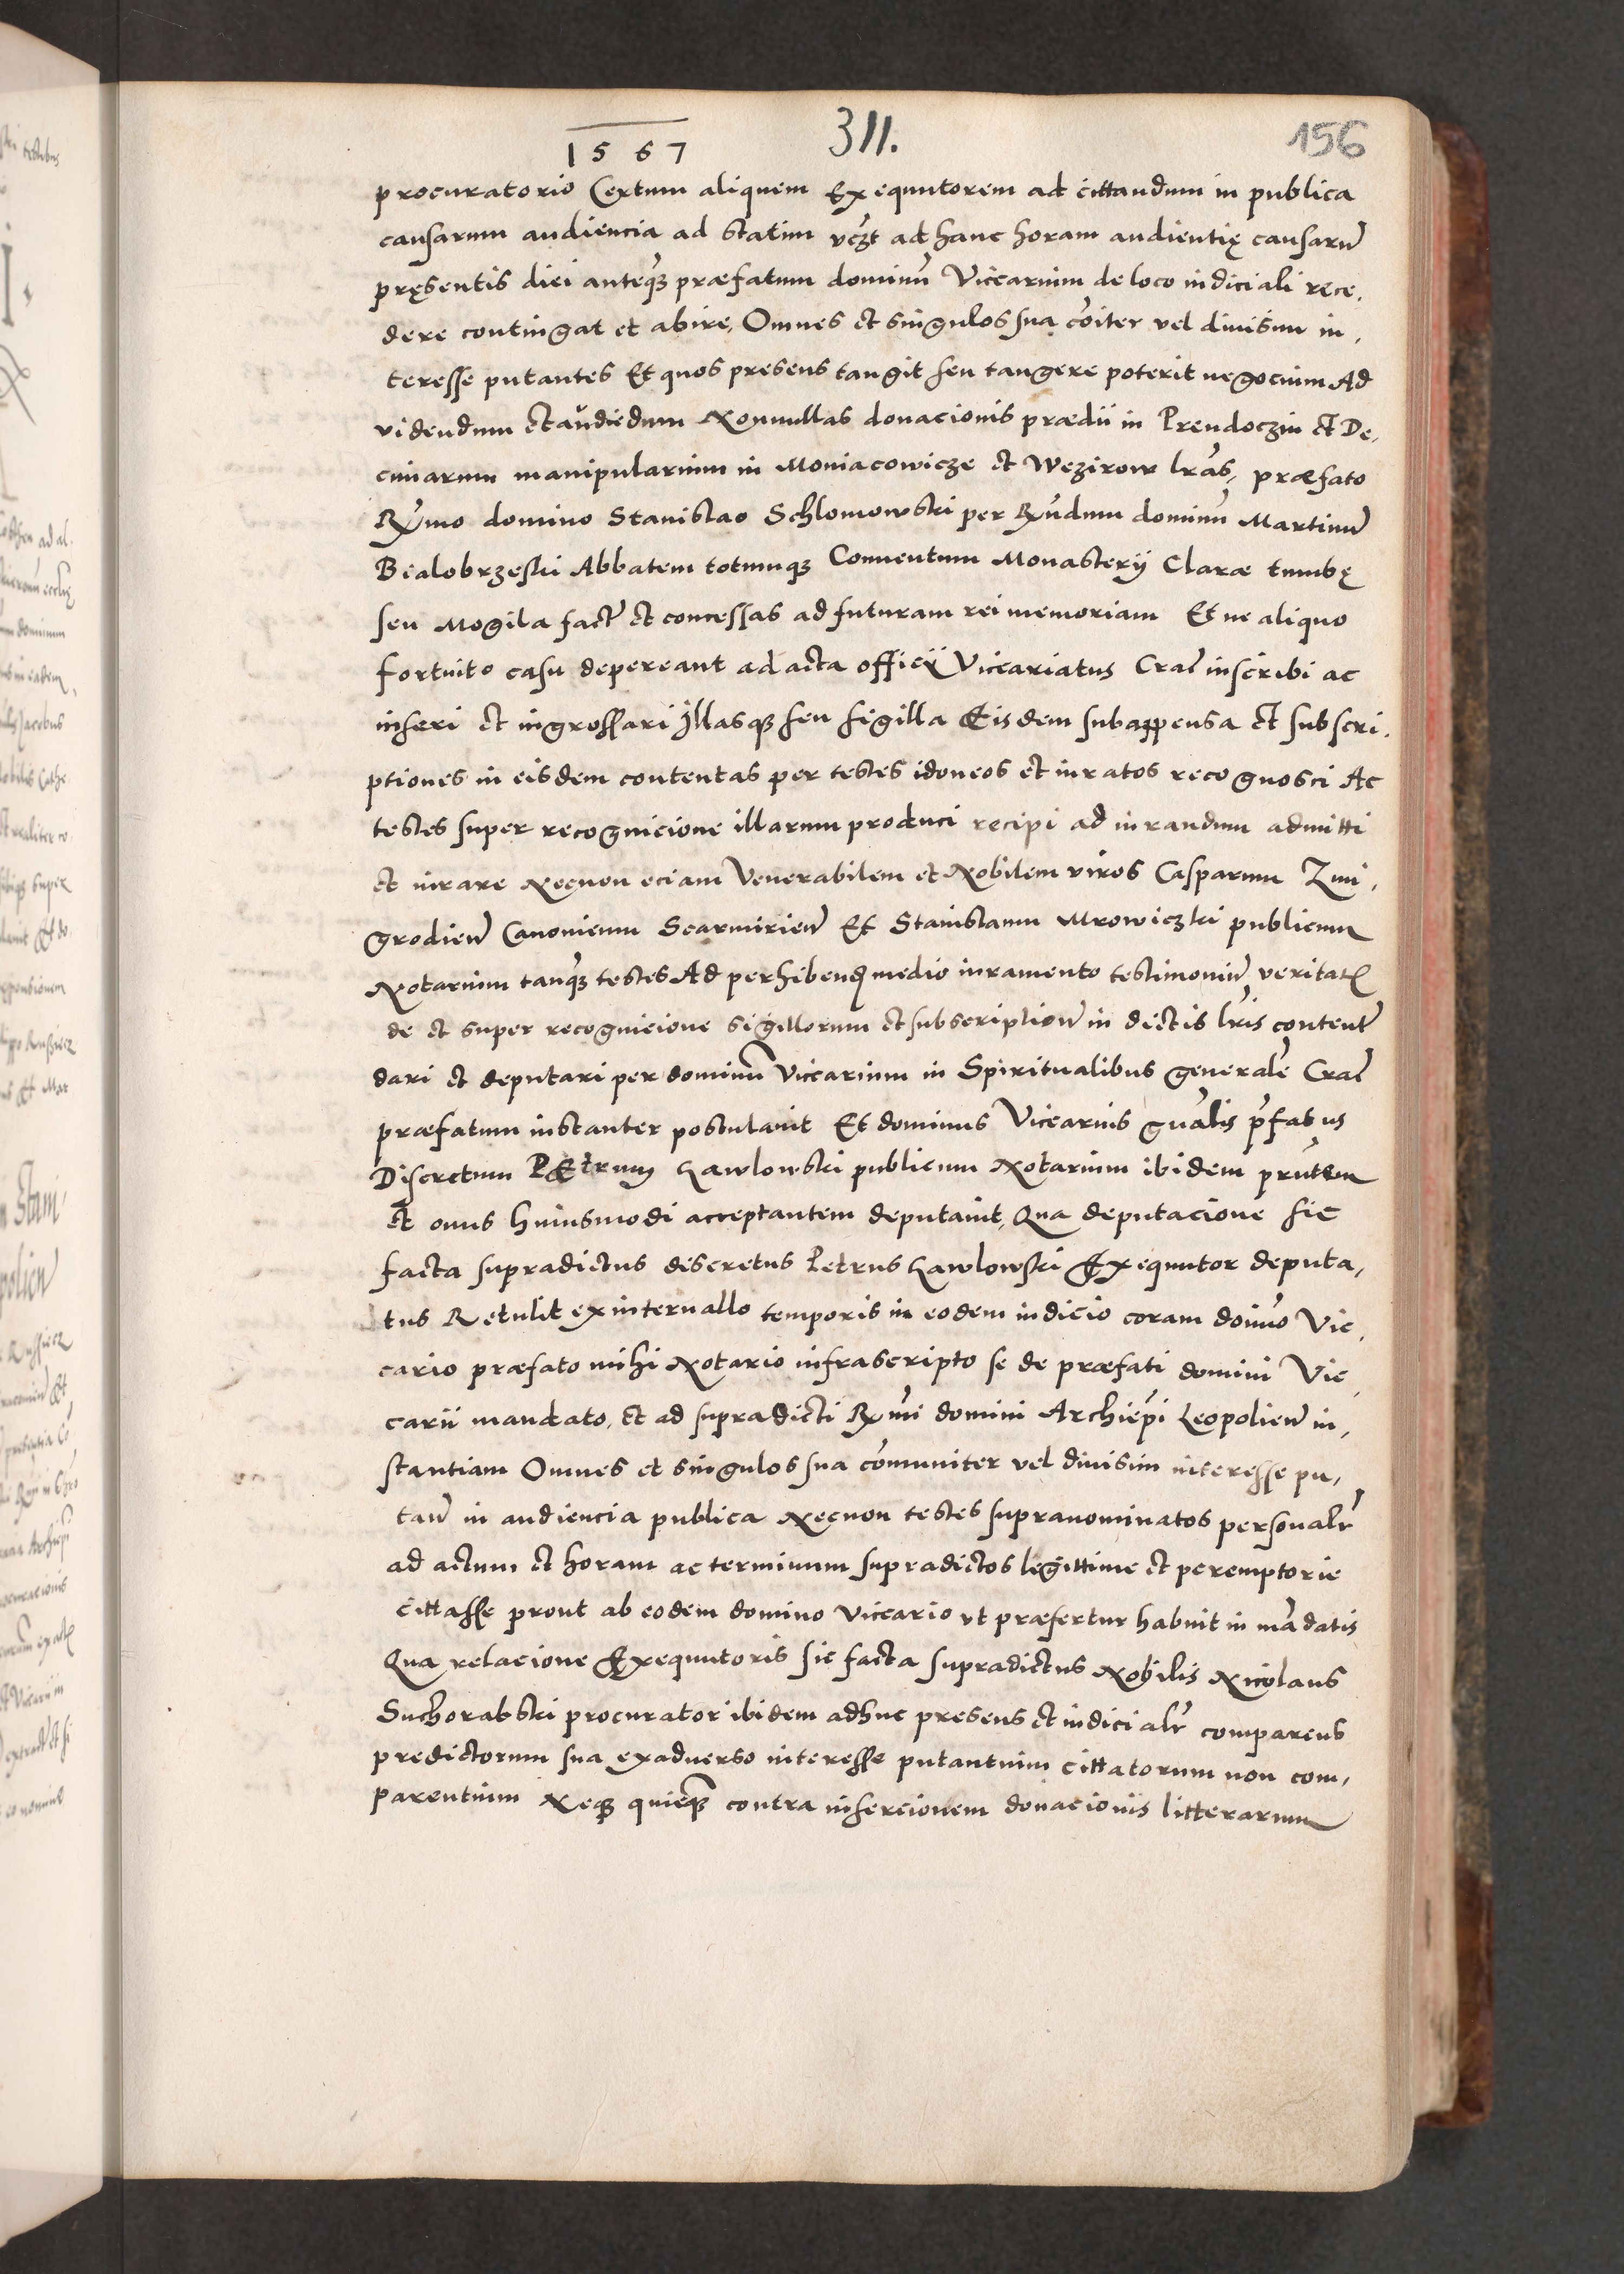 1567
311.
156
procuratorio Certum aliquem Exequutorem ad cittandum in publica
causarum audiencia ad statim vczt ad hanc horam audientię causarū
pręsentis diei anteq̄ȝ præfatum dominū Vicearium de loco iudiciali rece,
dere contingat et abire, Omnes et singulos sua cōiter vel diuisim in,
teresse putantes Et quos presens tangit seu tangere poterit negocium Ad
videndum et audiēdum Nonnullas donacionis prædii in Prendoczin et De,
cimarum manipularium in Moniacowicze et Wezirow lrās, præfato
Rx̄mo domino Stanislao Schlomowski per Rx̄ndum dominū Martinū
Bialobrzeski Abbatem totumqȝ Conuentum Monasterÿ Claræ tumbę
seu Mogila fact̄ et concessas ad futuram rei memoriam Et ne aliquo
fortuito casu depereant ad acta officÿ Viceariatus Crac̄ inscribi ac
inseri et ingrossari Illasqȝ seu sigilla Eisdem subappensa et subscri,
ptiones in eisdem contentas per testes idoneos et iuratos recognosci Ac
testes super recognicione illarum produci recipi ad iurandum admitti
et iurare Necnon eciam Venerabilem et Nobilem viros Casparum Zmi,
grodien̄ Canonicum Scarmirien̄ Et Stanislaum Mrowiczki publicum
Notarium tanq̄ȝ testes Ad perhibend̄ medio iuramento testimoniū veritatꝭ
de et super recognicione sigillorum et subscription̄ in dictis lr̄is content̄
dari et deputari per dominū Vicearium in Spiritualibus generalē Crac̄
præfatum instanter postulauit Et dominus Vicearius gn̄alis p̄fatus
Discretum PEtrum Lawlowski publicum Notarium ibidem prn̄tem
et onus huiusmodi acceptantem deputauit, Qua deputacione sic
facta supradictus discretus Petrus Lawlowski Exequutor deputa,
tus Retulit ex interuallo temporis in eodem iudicio coram domīo Vic,
cario præfato mihi Notario infrascripto se de præfati domini Vic,
carii mandato, et ad supradicti Rx̄mi domini Archiep̄i Leopolien̄ in,
stantiam Omnes et singulos sua cōmuniter vel diuisim interesse pu,
tan̄ in audiencia publica Necnon testes supranominatos personalr̄
ad actum et horam ac terminum supradictos legittime et peremptorie
cittasse prout ab eodem domino Viceario vt præfertur habuit in mādatis
Qua relacione Exequutoris sic facta supradictus Nobilis Nicolaus
Suchorabski procurator ibidem adhuc presens et iudicialr̄ comparens
predictorum sua exaduerso interesse putantium cittatorum non com,
parentium Neqȝ quicq̄ȝ contra insercionem donacionis litterarum